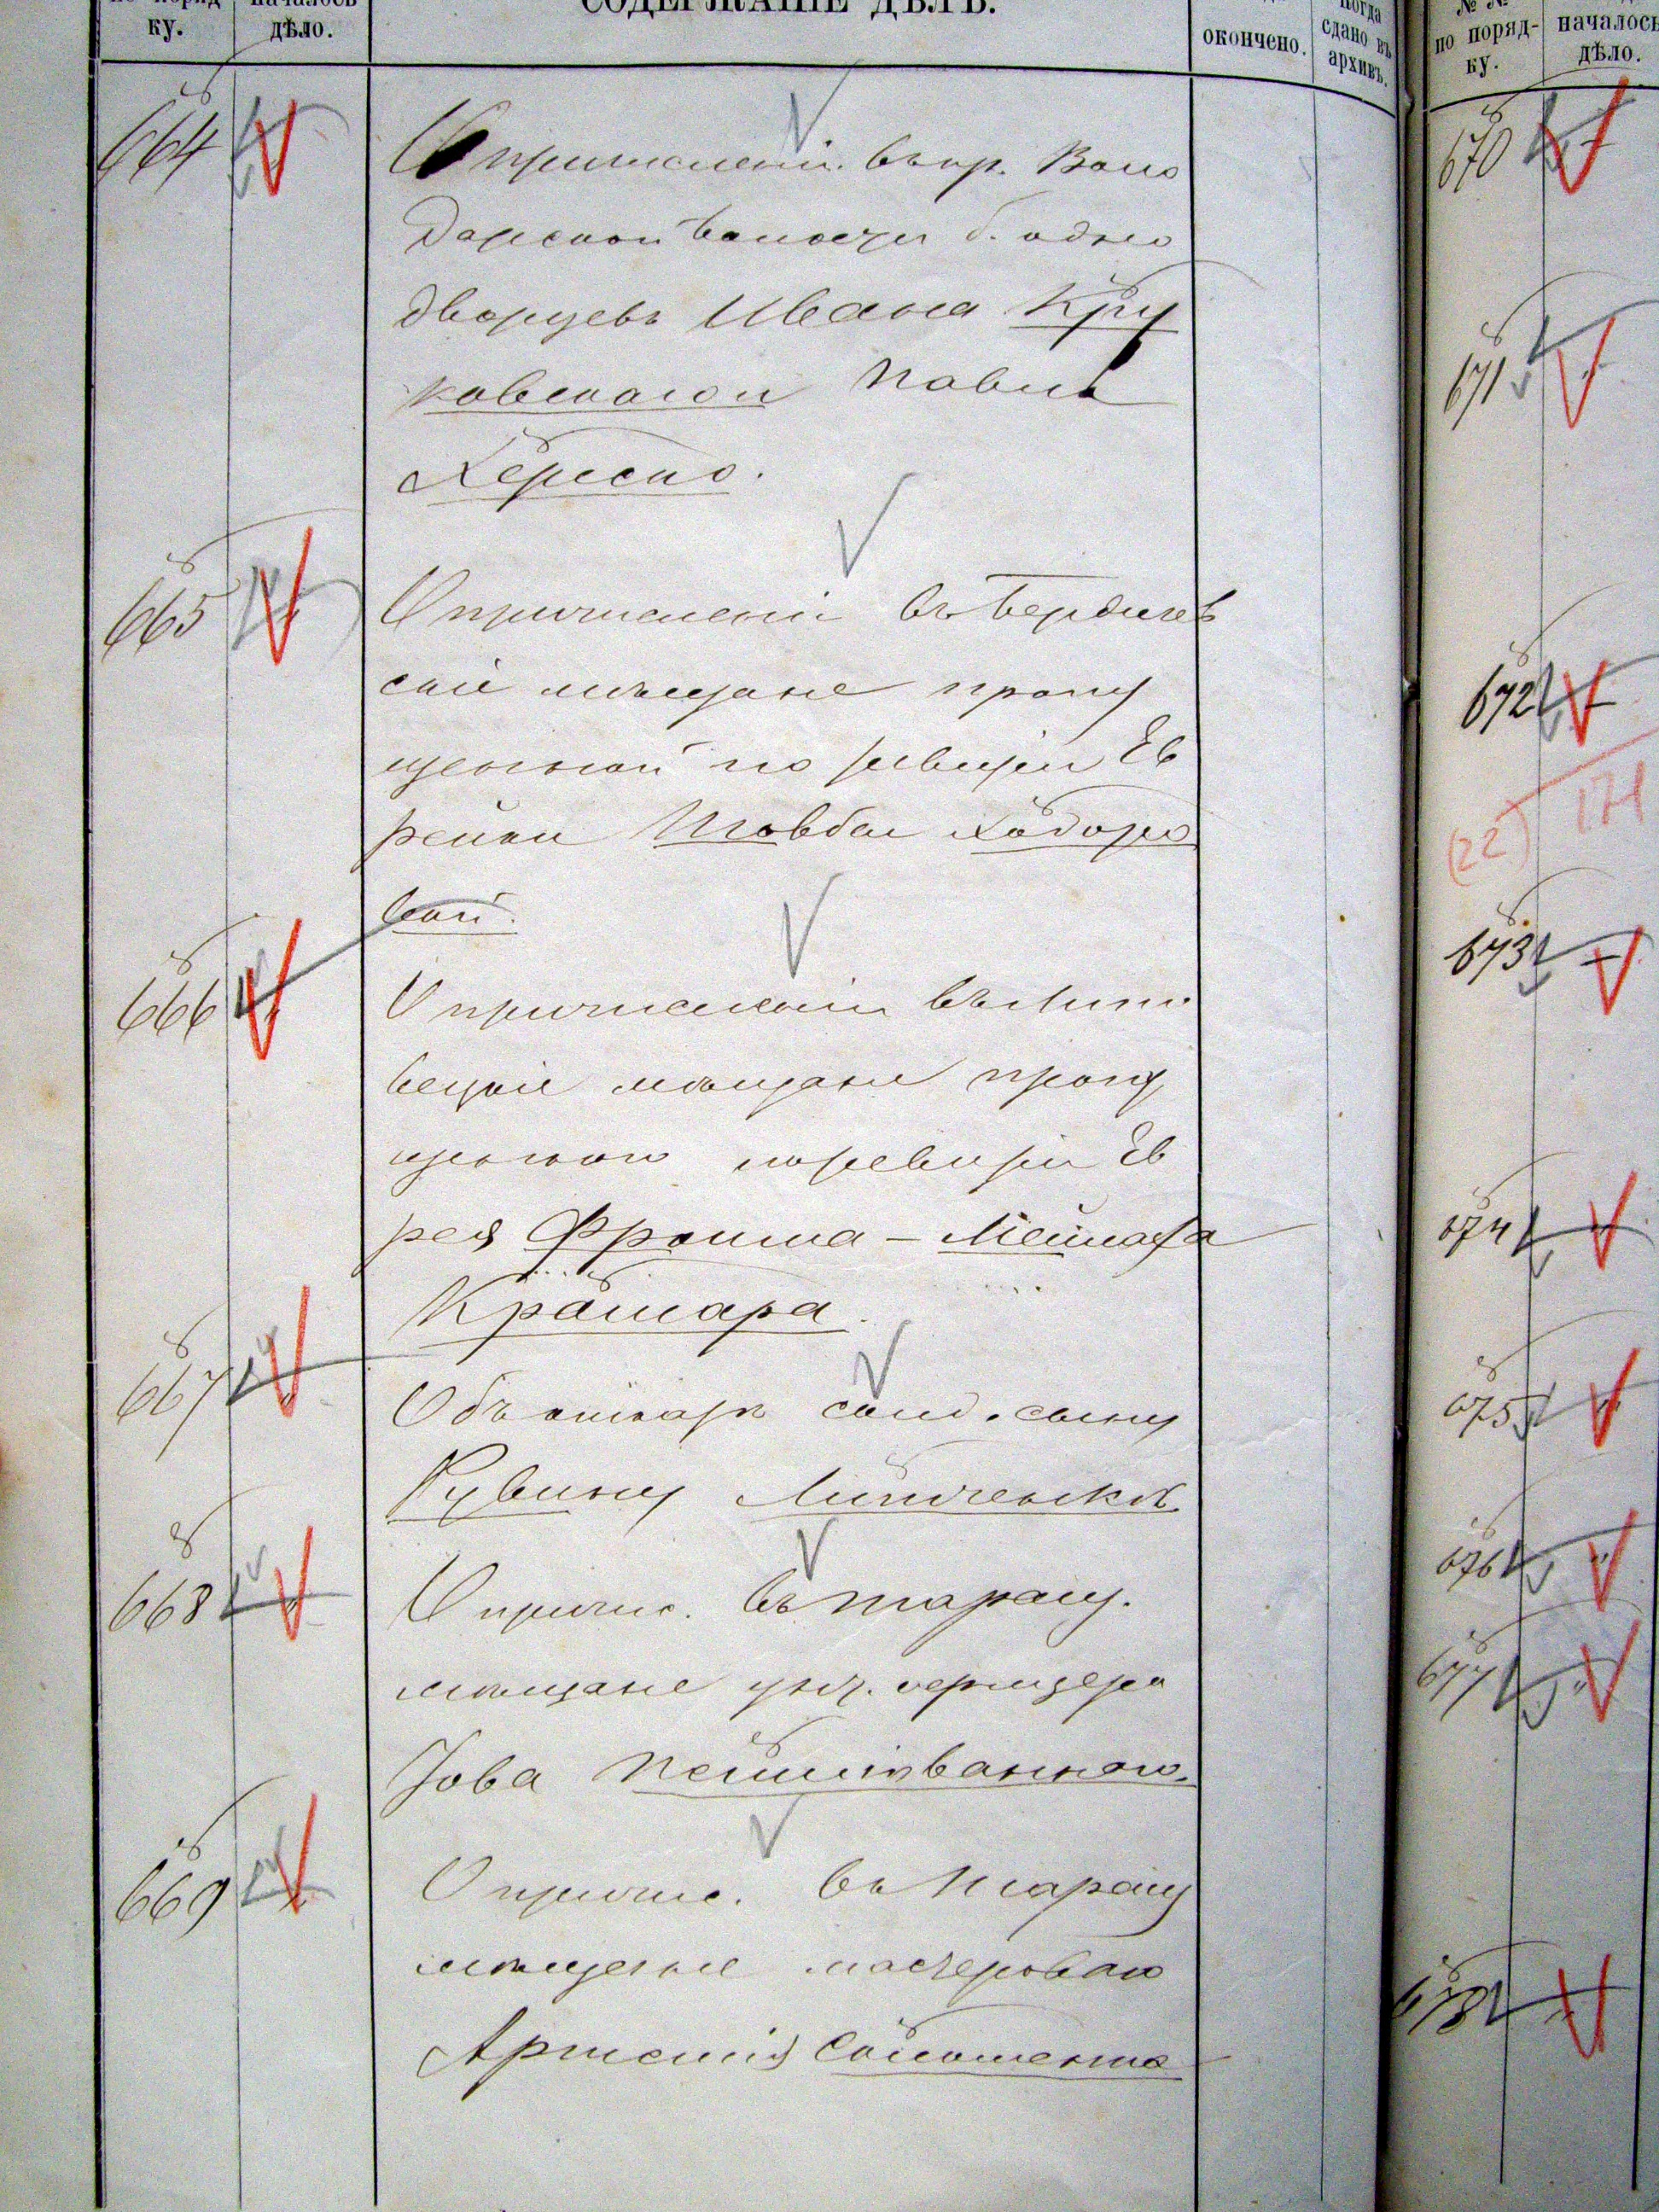 по поряд-
ку.
началось
дѣло.
СОДЕРЖАНІЕ ДѢЛЪ.
окончено.
когда
сдано въ
архивъ.
664
О причислені. въ кр. Воло
дарской волости б. одно
дворцевъ Ивана Кру
ковскаго и Павла
665
О причислені въ Бердичев
скіе мѣщане пропу
щенной по ревизіи Ев
рейки Товбы Ходоро
вой.
666
О причисленіи въ Липо
вецкіе мѣщане пропу
щеннаго по ревизіи Ев
рея Фроима - Мейлаха
Крамара.
667
Объ солд. сыну
Рувину
668
О причис. въ Таращ.
мѣщане унт. офицера
Іова
669
О причис. въ Таращ
мѣщане мастероваго
Артемія Соломенка
№ №
по поряд-
ку.
началось
дѣло.
670
671
672
(22) 174
673
674
675
676
677
678